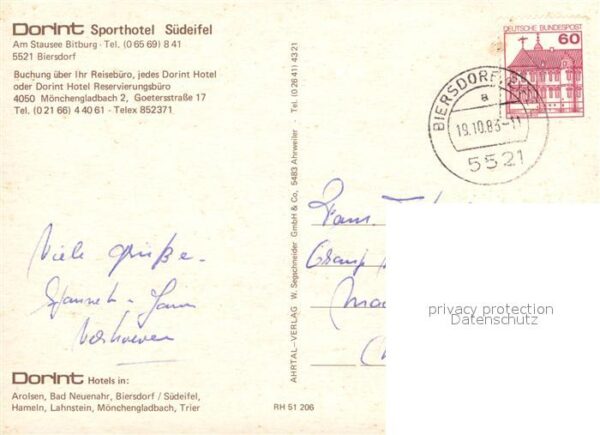 Dorint Sporthotel Südeifel
Am Stausee Bitburg · Tel. (0 65 69) 8 41
5521 Biersdorf
Buchung über Ihr Reisebüro, jedes Dorint Hotel
oder Dorint Hotel Reservierungsbüro
4050 Mönchengladbach 2, Goetersstraße 17
Tel. (0 21 66) 4 40 61 · Telex 852371
Viele Grüße.
Dorint Hotels in:
Arolsen, Bad Neuenahr, Biersdorf / Südeifel,
Hameln, Lahnstein, Mönchengladbach, Trier
AHRTAL-VERLAG W. Segschneider GmbH & Co, 5483 Ahrweiler · Tel. (0 26 41) 43 21
RH 51 206
DEUTSCHE BUNDESPOST
60
BIERSDORF
a
19.10.83-11
5521
privacy protection
Datenschutz